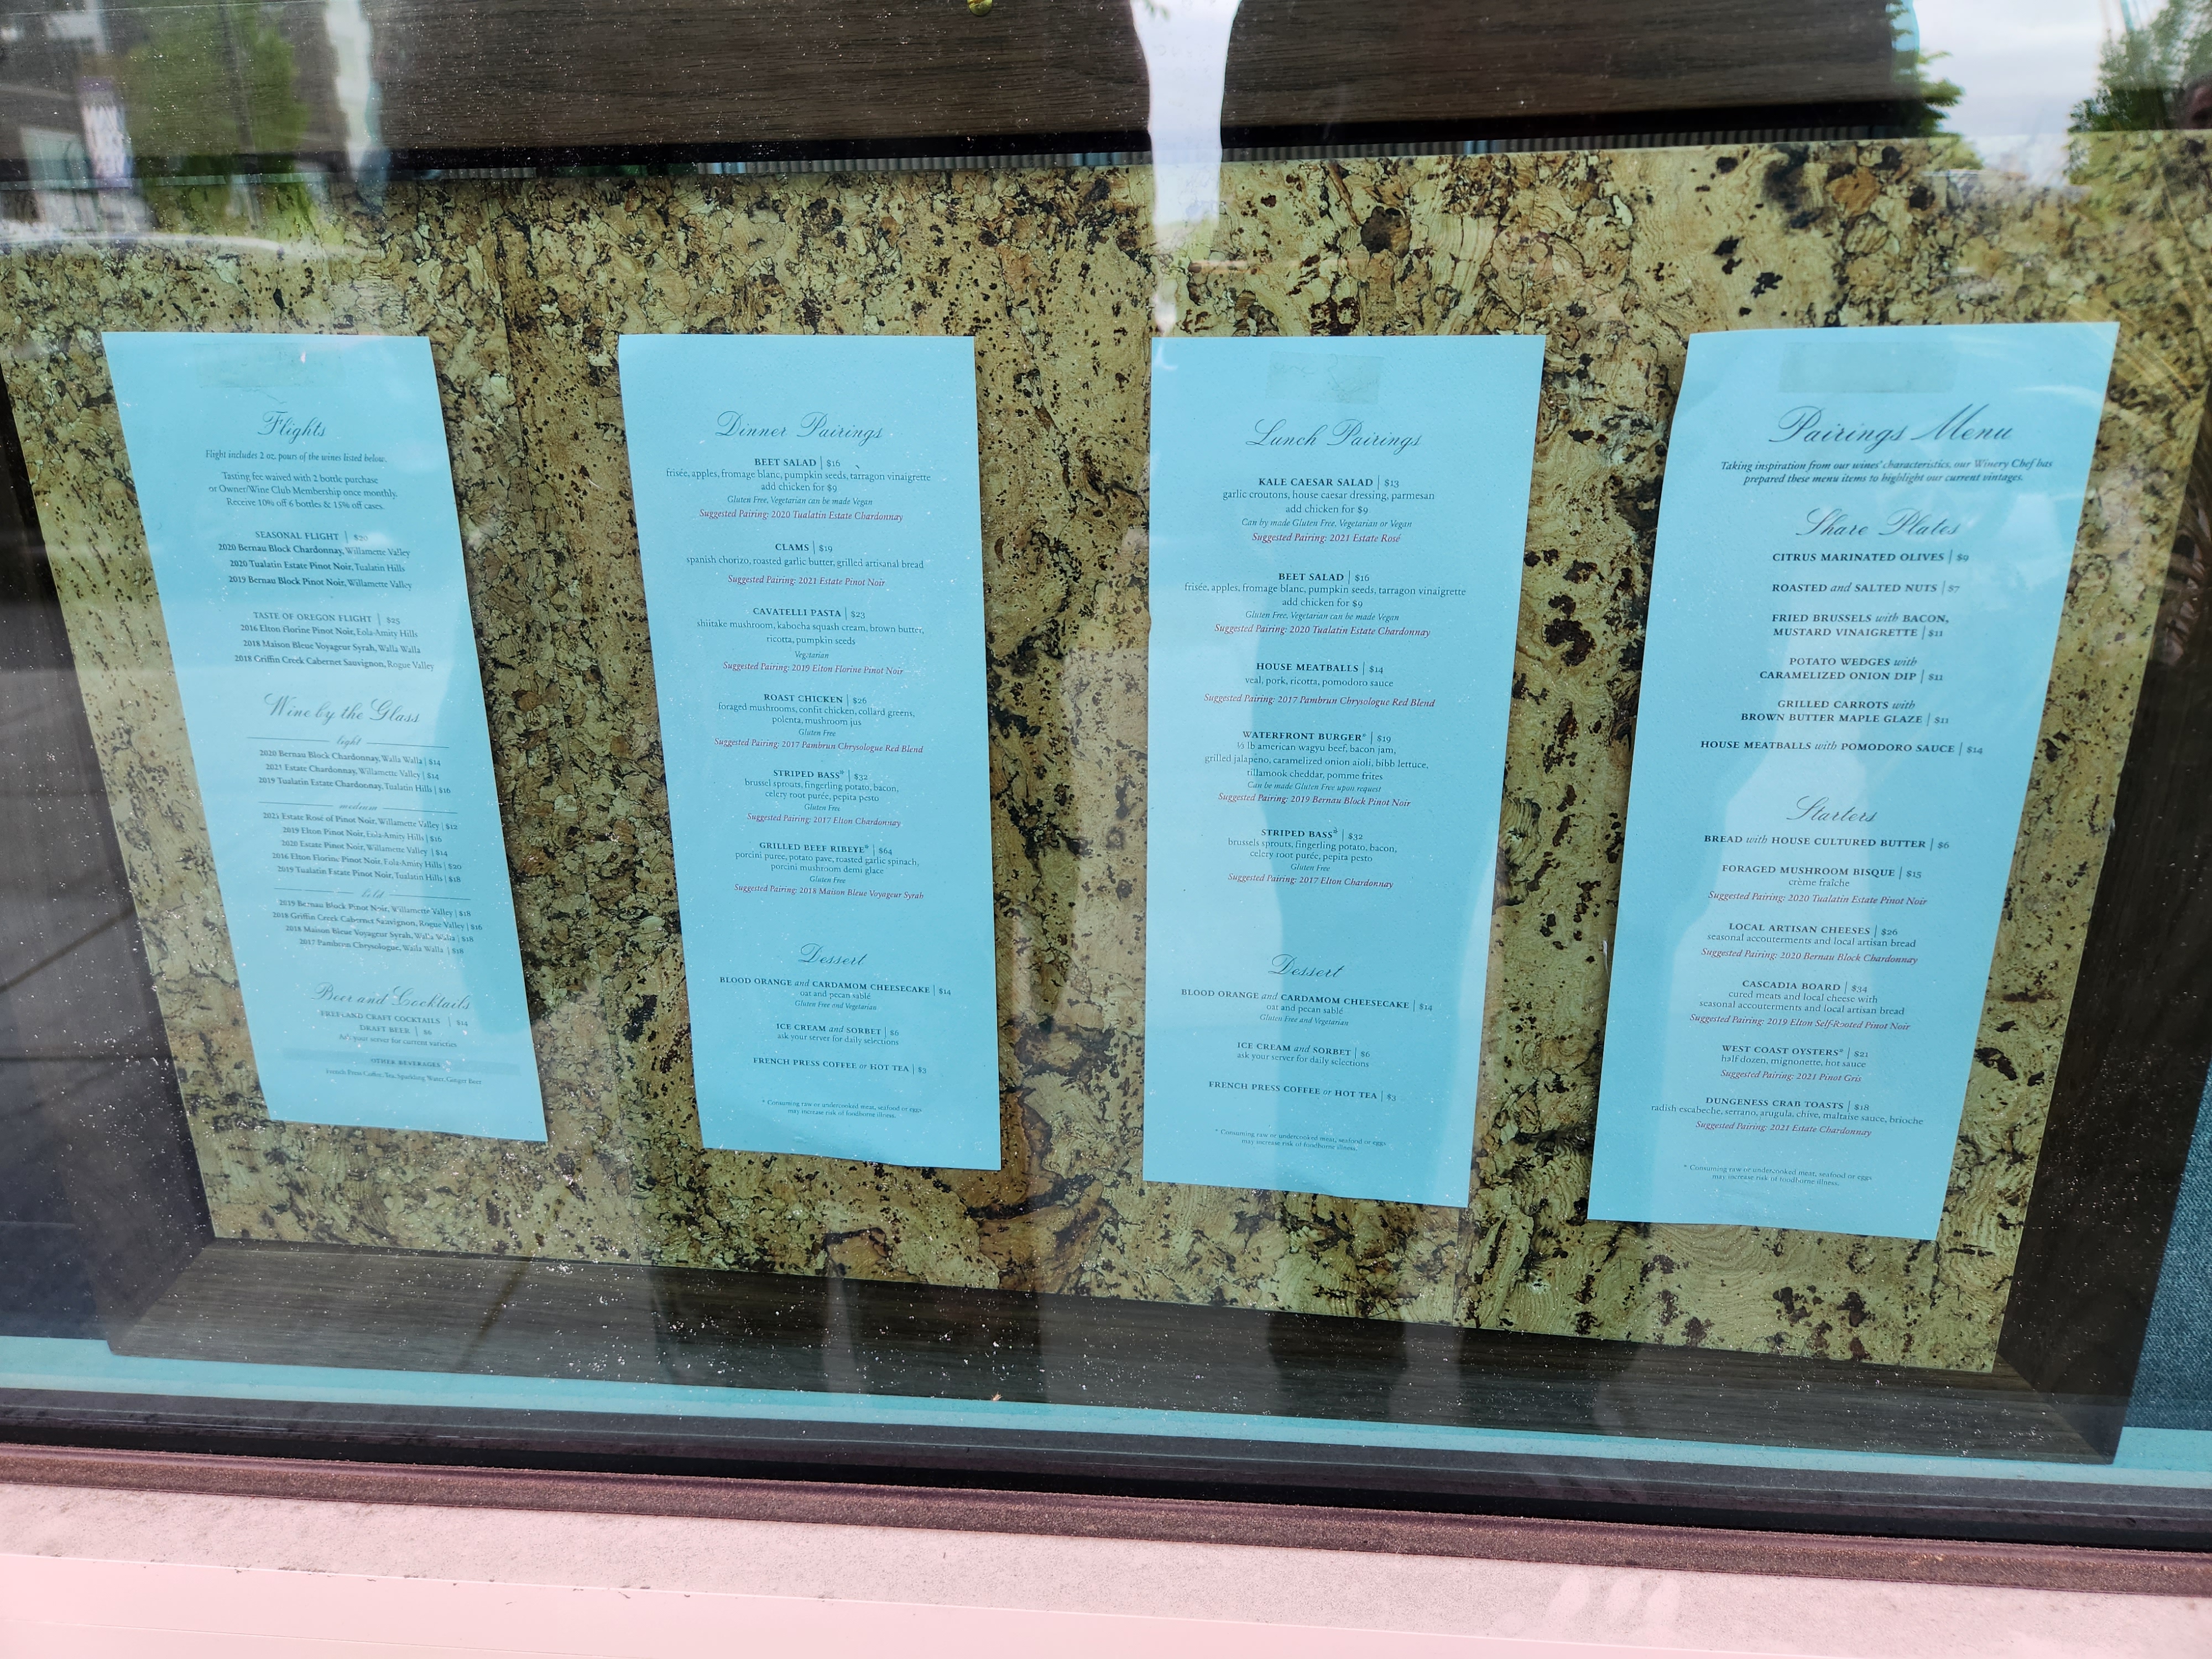 Flights
Flight includes 2 oz. pours of the wines listed below.
Tasting fee waived with 2 bottle purchase
or Owner/Wine Club Membership once monthly.
Receive 10% off 6 bottles & 15% off cases.
SEASONAL FLIGHT | $20
2020 Bernau Block Chardonnay, Willamette Valley
2020 Tualatin Estate Pinot Noir, Tualatin Hills
2019 Bernau Block Pinot Noir, Willamette Valley
TASTE OF OREGON FLIGHT | $25
2016 Elton Florine Pinot Noir, Eola-Amity Hills
2018 Maison Bleue Voyageur Syrah, Walla Walla
2018 Griffin Creek Cabernet Sauvignon, Rogue Valley
Wine by the Glass
light
2020 Bernau Block Chardonnay, Walla Walla | $14
2021 Estate Chardonnay, Willamette Valley | $14
2019 Tualatin Estate Chardonnay, Tualatin Hills | $16
medium
2021 Estate Rosé of Pinot Noir, Willamette Valley | $12
2019 Elton Pinot Noir, Eola-Amity Hills | $16
2020 Estate Pinot Noir, Willamette Valley | $14
2016 Elton Florine Pinot Noir, Eola-Amity Hills | $20
2019 Tualatin Estate Pinot Noir, Tualatin Hills | $18
bold
2019 Bernau Block Pinot Noir, Willamette Valley | $18
2018 Griffin Creek Cabernet Sauvignon, Rogue Valley | $16
2018 Maison Bleue Voyageur Syrah, Walla Walla | $18
2017 Pambrun Chrysologue, Walla Walla | $18
Beer and Cocktails
FREELAND CRAFT COCKTAILS | $14
DRAFT BEER | $6
Ask your server for current varieties
OTHER BEVERAGES
French Press Coffee, Tea, Sparkling Water, Ginger Beer
Dinner Pairings
BEET SALAD | $16
frisée, apples, fromage blanc, pumpkin seeds, tarragon vinaigrette
add chicken for $9
Gluten Free, Vegetarian can be made Vegan
Suggested Pairing: 2020 Tualatin Estate Chardonnay
CLAMS | $19
spanish chorizo, roasted garlic butter, grilled artisanal bread
Suggested Pairing: 2021 Estate Pinot Noir
CAVATELLI PASTA | $23
shiitake mushroom, kabocha squash cream, brown butter,
ricotta, pumpkin seeds
Vegetarian
Suggested Pairing: 2019 Elton Florine Pinot Noir
ROAST CHICKEN | $26
foraged mushrooms, confit chicken, collard greens,
polenta, mushroom jus
Gluten Free
Suggested Pairing: 2017 Pambrun Chrysologue Red Blend
STRIPED BASS* | $32
brussel sprouts, fingerling potato, bacon,
celery root purée, pepita pesto
Gluten Free
Suggested Pairing: 2017 Elton Chardonnay
GRILLED BEEF RIBEYE* | $64
porcini puree, potato pave, roasted garlic spinach,
porcini mushroom demi glace
Gluten Free
Suggested Pairing: 2018 Maison Bleue Voyageur Syrah
Dessert
BLOOD ORANGE and CARDAMOM CHEESECAKE | $14
oat and pecan sablé
Gluten Free and Vegetarian
ICE CREAM and SORBET | $6
ask your server for daily selections
FRENCH PRESS COFFEE or HOT TEA | $3
* Consuming raw or undercooked meat, seafood or eggs
may increase risk of foodborne illness.
Lunch Pairings
KALE CAESAR SALAD | $13
garlic croutons, house caesar dressing, parmesan
add chicken for $9
Can by made Gluten Free, Vegetarian or Vegan
Suggested Pairing: 2021 Estate Rosé
BEET SALAD | $16
frisée, apples, fromage blanc, pumpkin seeds, tarragon vinaigrette
add chicken for $9
Gluten Free, Vegetarian can be made Vegan
Suggested Pairing: 2020 Tualatin Estate Chardonnay
HOUSE MEATBALLS | $14
veal, pork, ricotta, pomodoro sauce
Suggested Pairing: 2017 Pambrun Chrysologue Red Blend
WATERFRONT BURGER* | $19
½ lb american wagyu beef, bacon jam,
grilled jalapeno, caramelized onion aioli, bibb lettuce,
tillamook cheddar, pomme frites
Can be made Gluten Free upon request
Suggested Pairing: 2019 Bernau Block Pinot Noir
STRIPED BASS* | $32
brussels sprouts, fingerling potato, bacon,
celery root purée, pepita pesto
Gluten Free
Suggested Pairing: 2017 Elton Chardonnay
Dessert
BLOOD ORANGE and CARDAMOM CHEESECAKE | $14
oat and pecan sablé
Gluten Free and Vegetarian
ICE CREAM and SORBET | $6
ask your server for daily selections
FRENCH PRESS COFFEE or HOT TEA | $3
* Consuming raw or undercooked meat, seafood or eggs
may increase risk of foodborne illness.
Pairings Menu
Taking inspiration from our wines' characteristics, our Winery Chef has
prepared these menu items to highlight our current vintages.
Share Plates
CITRUS MARINATED OLIVES | $9
ROASTED and SALTED NUTS | $7
FRIED BRUSSELS with BACON,
MUSTARD VINAIGRETTE | $11
POTATO WEDGES with
CARAMELIZED ONION DIP | $11
GRILLED CARROTS with
BROWN BUTTER MAPLE GLAZE | $11
HOUSE MEATBALLS with POMODORO SAUCE | $14
Starters
BREAD with HOUSE CULTURED BUTTER | $6
FORAGED MUSHROOM BISQUE | $15
crème fraîche
Suggested Pairing: 2020 Tualatin Estate Pinot Noir
LOCAL ARTISAN CHEESES | $26
seasonal accouterments and local artisan bread
Suggested Pairing: 2020 Bernau Block Chardonnay
CASCADIA BOARD | $34
cured meats and local cheese with
seasonal accouterments and local artisan bread
Suggested Pairing: 2019 Elton Self-Rooted Pinot Noir
WEST COAST OYSTERS* | $21
half dozen, mignonette, hot sauce
Suggested Pairing: 2021 Pinot Gris
DUNGENESS CRAB TOASTS | $18
radish escabeche, serrano, arugula, chive, maltaise sauce, brioche
Suggested Pairing: 2021 Estate Chardonnay
* Consuming raw or undercooked meat, seafood or eggs
may increase risk of foodborne illness.